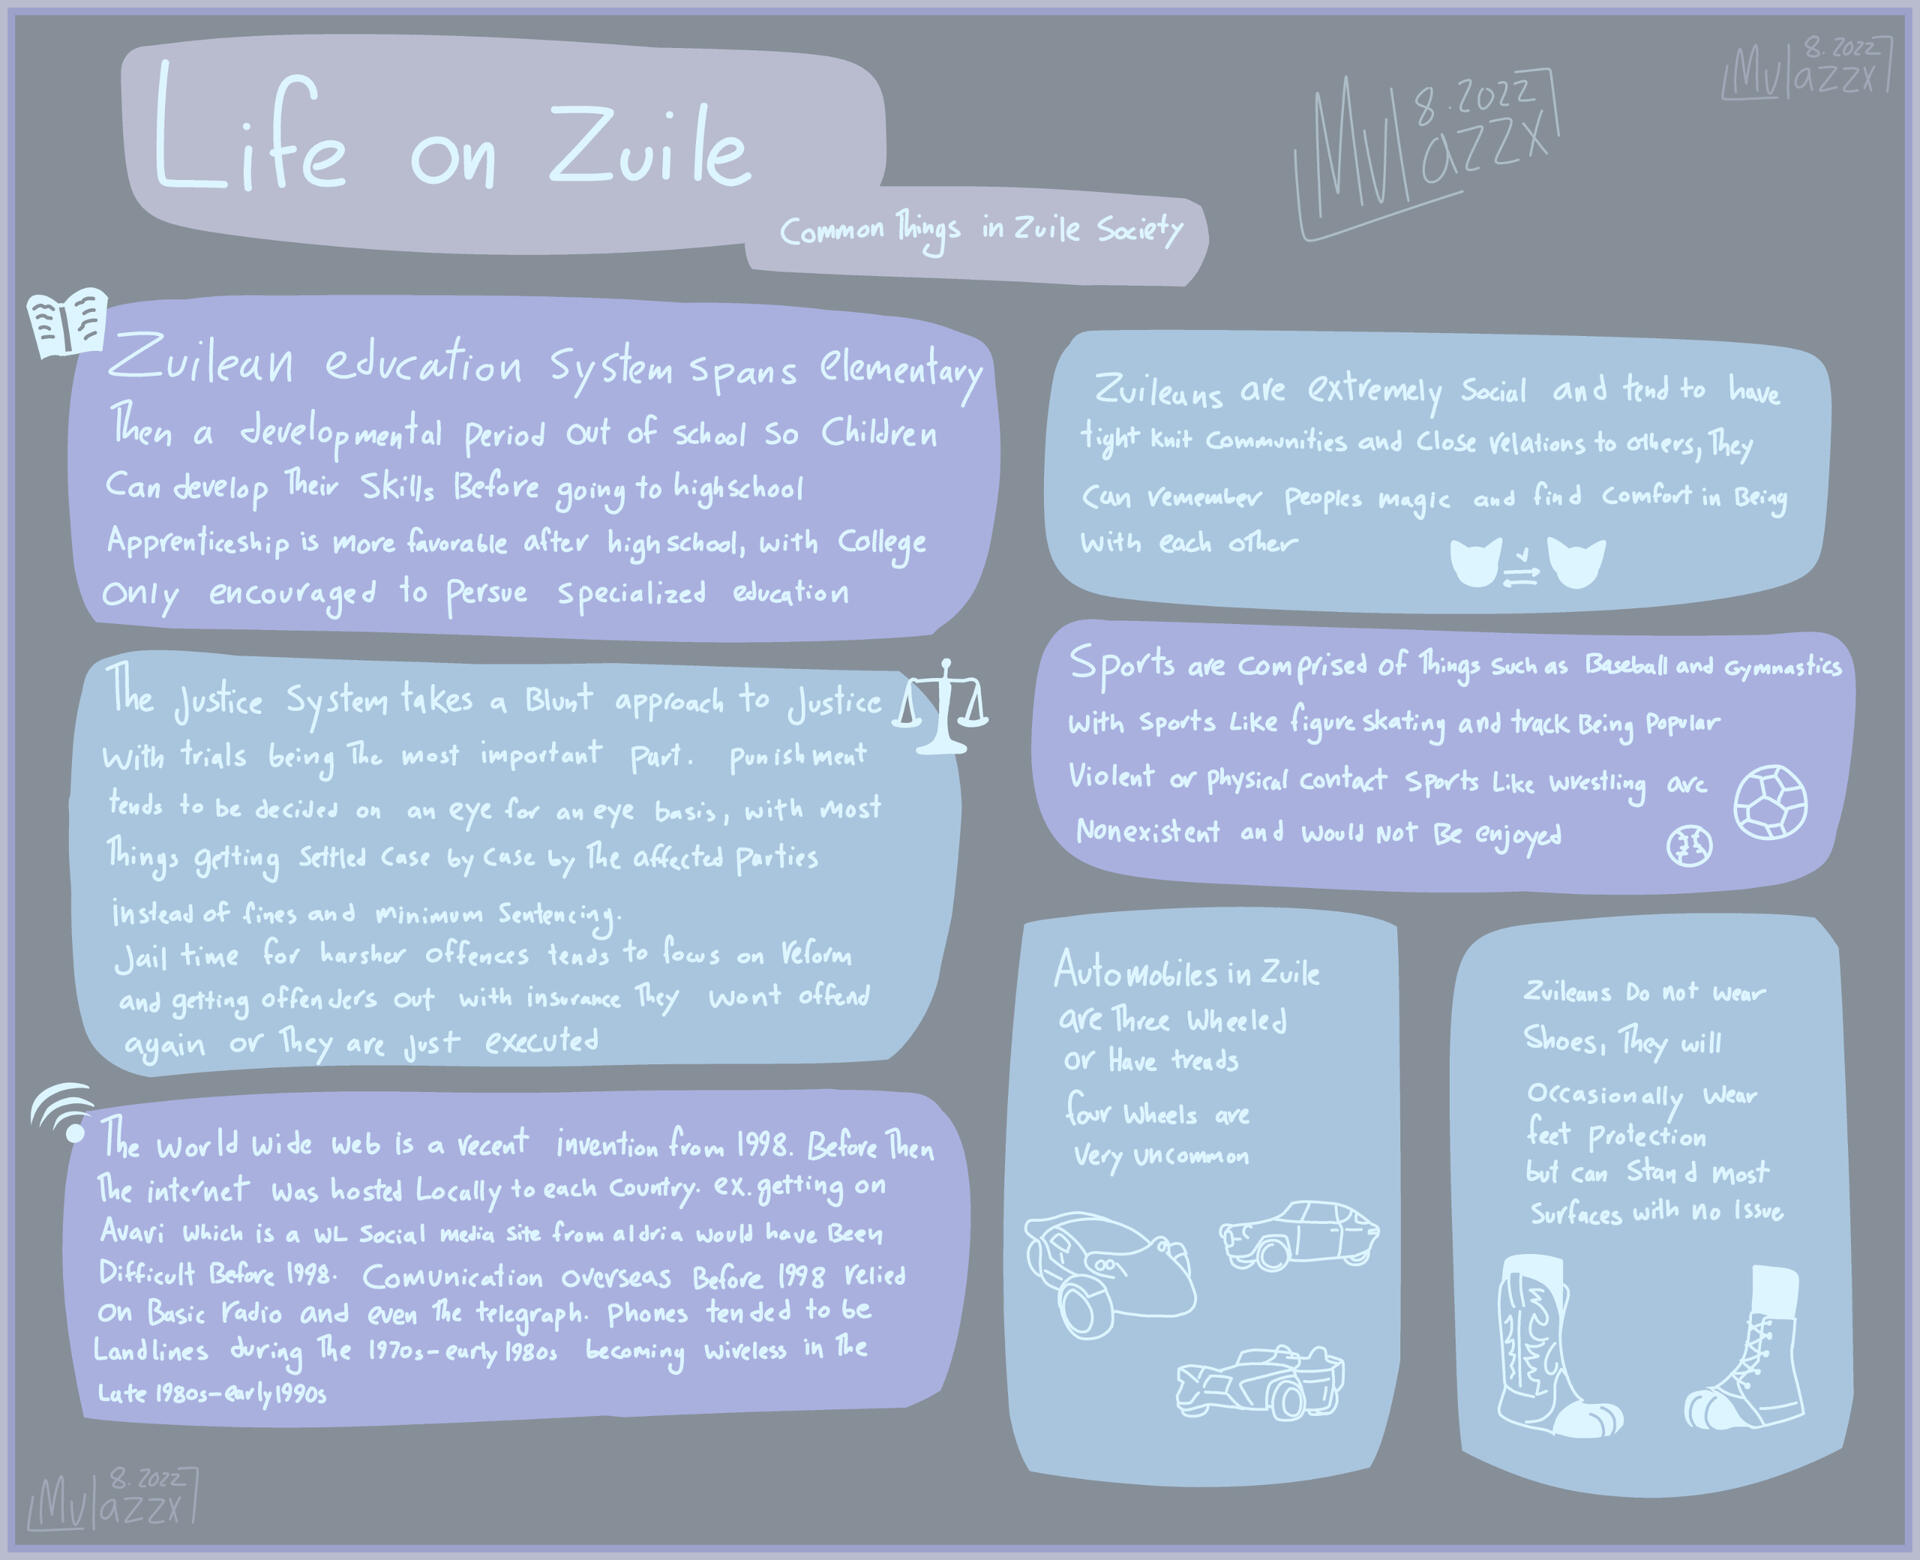 Life on Zuile
Common Things in Zuile Society
8.2022
Mulazzx
8.2022
Mulazzx
Zuilean education System spans elementary
Then a developmental period out of school so Children
Can develop Their Skills Before going to highschool
Apprenticeship is more favorable after highschool, with College
Only encouraged to Persue specialized education
The Justice System takes a Blunt approach to Justice
With trials being The most important Part. Punishment
tends to be decided on an eye for an eye basis, with most
Things getting Settled Case by Case by The affected Parties
instead of fines and minimum Sentencing.
Jail time for harsher offences tends to focus on Reform
and getting offenders out with insurance They wont offend
again or They are just executed
The world wide web is a recent invention from 1998. Before Then
The internet was hosted Locally to each Country. ex. getting on
Avari which is a WL Social media site from aldria would have Been
Difficult Before 1998. Comunication overseas Before 1998 relied
on Basic radio and even The telegraph. Phones tended to be
Landlines during The 1970s-early 1980s becoming wireless in The
Late 1980s-early 1990s
Zuileans are extremely Social and tend to have
tight knit Communities and Close relations to others, They
Can remember Peoples magic and find Comfort in Being
with each other
Sports are comprised of Things such as Baseball and Gymnastics
with Sports Like figure Skating and track Being Popular
Violent or physical contact Sports Like wrestling are
Nonexistent and would Not Be enjoyed
Automobiles in Zuile
are Three Wheeled
or Have treads
four Wheels are
Very uncommon
Zuileans Do not wear
Shoes, They will
Occasionally wear
feet Protection
but can Stand most
Surfaces with no Issue
8.2022
Mulazzx